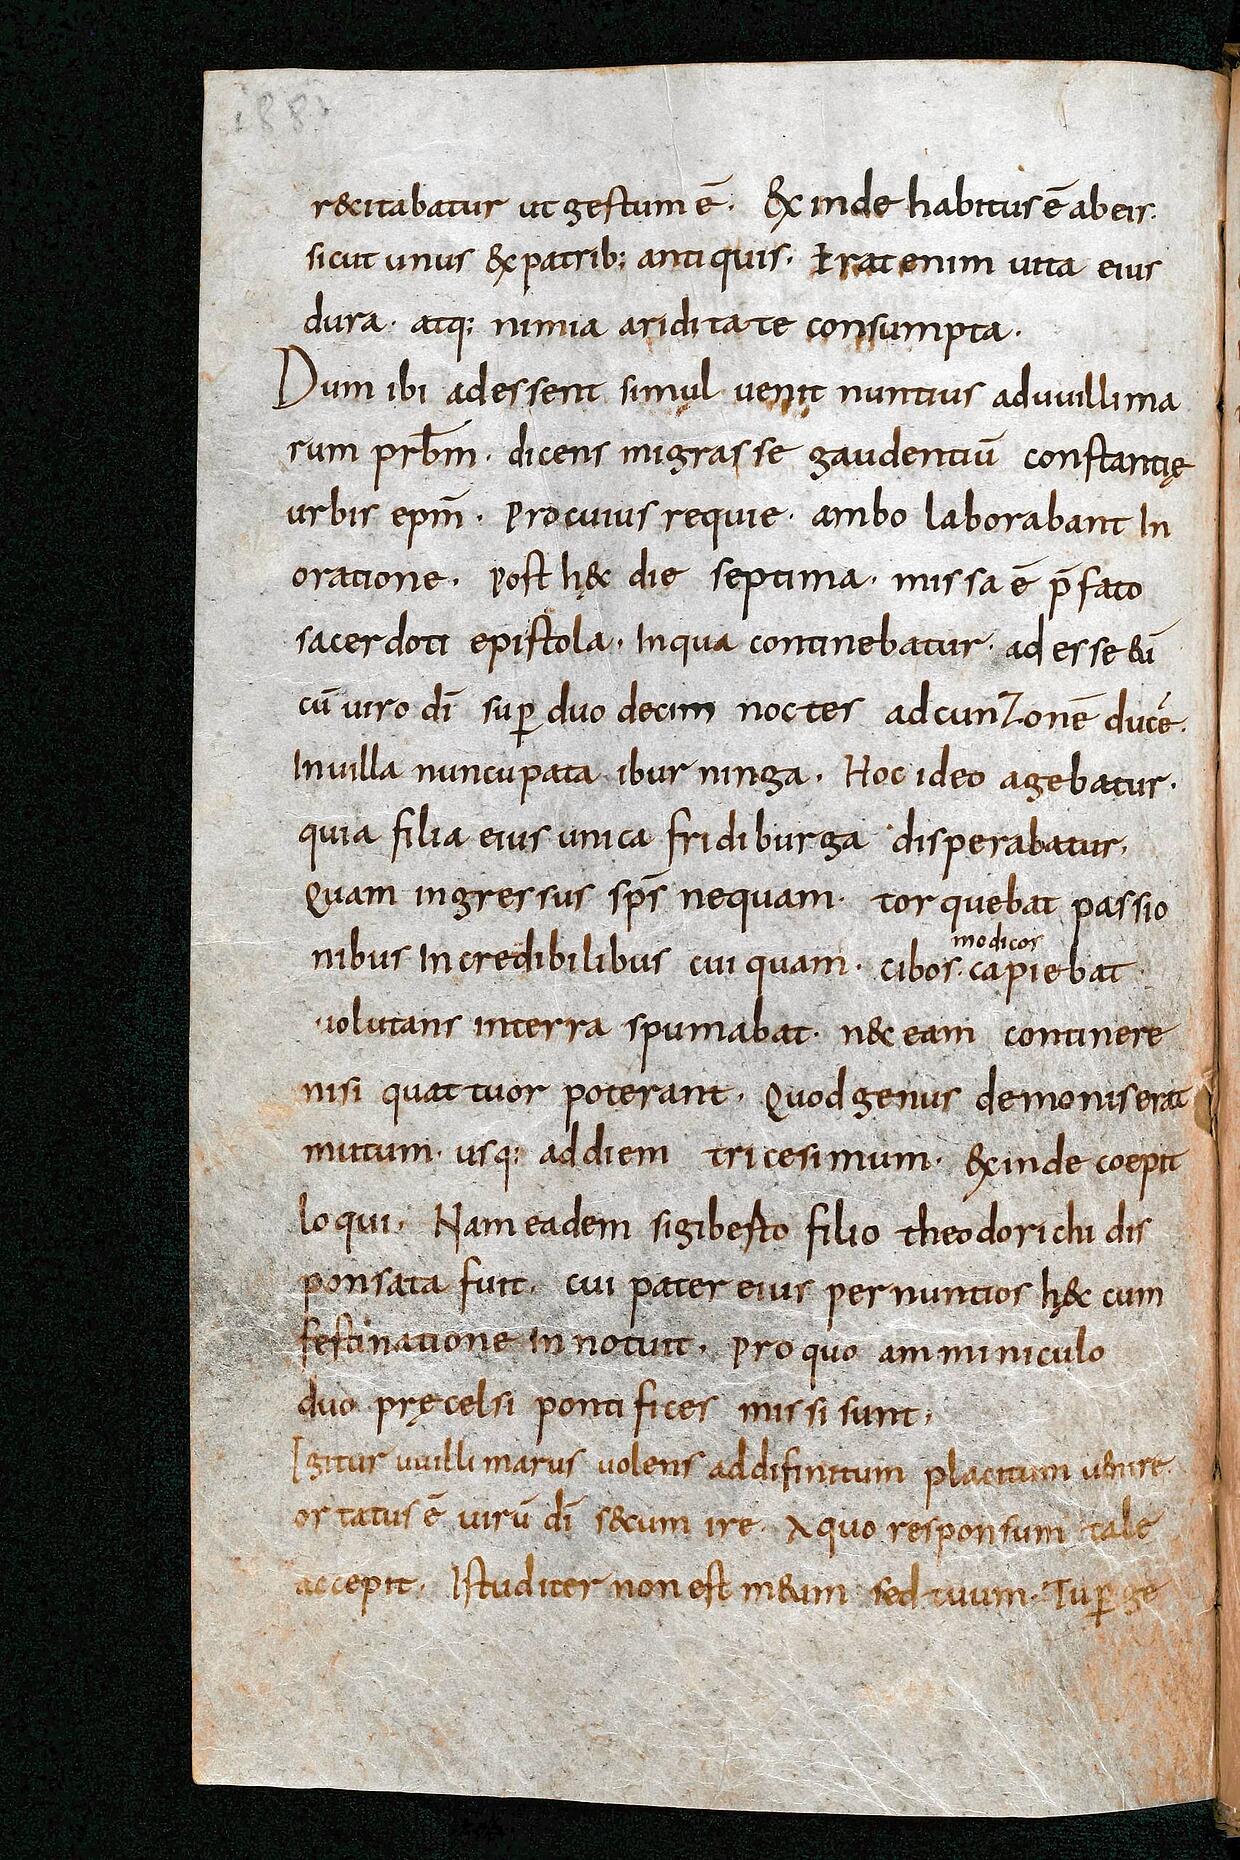 r&citabatur ut gestum ē. Ex inde habitus ē abeis.
sicut unus & patrib; antiquis. Erat enim uita eius
dura. atq; nimia ariditate consumpta.
Dum ibi adessent simul uenit nuntius aduuillima
rum prbm̄. dicens migrasse gaudentiū constantię
urbis epm̄. Pro cuius requie. ambo laborabant In
oratione. Post h&̨c die septima. missa ē p̄fato
sacerdoti epistola. In qua continebatur. adesse &ū
cū uiro dī sup̱ duodecim noctes adcunzonē ducē.
In uilla nuncupata iburninga. Hoc ideo agebatur.
quia filia eius unica fridiburga disperabatur.
Quam ingressus sp̄s nequam. torquebat passio
modicos
nibus Incredibilibus cuiquam. cibos. capiebat
uolutans interra spumabat. n&c eam continere
nisi quattuor poterant. Quod genus demonis erat
mutum. usq; ad diem tricesimum. Exinde coepit
loqui. Nam eadem sigibesto filio theodorichi dis
ponsata fuit. cui pater eius per nuntios h&̨c cum
festinatione Innotuit. Pro quo amminiculo
duo pręcelsi pontifices missi sunt.
Igitur uuillimarus uolens addifinitum placitum uenire.
ortatus ē uirū dī s&cum ire. A quo responsum tale
accepit. Istud iter non est m&um sed tuum. Tu p̱ge